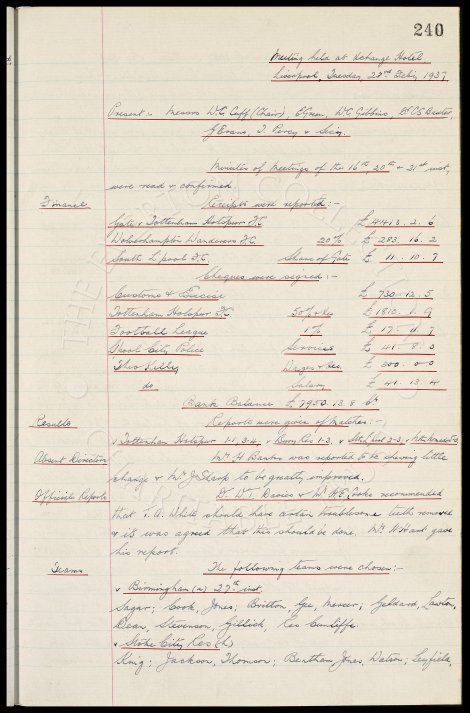 240
Meeting held at Xchange Hotel,
Liverpool, Tuesday, 23rd Feb'y 1937
Present:- Messrs W.C. Cuff (Chair), E. Green, W.C. Gibbins, Dr C.S. Baxter,
G. Evans, T. Percy & Secy.
Minutes of Meetings of the 16th 20th & 21st inst,
were read & confirmed.
Finance Receipts were reported:-
Gate v Tottenham Hotspur F.C. £ 4413. 2. 6
Wolverhampton Wanderers F.C. 20% £ 283. 16. 2
South L'pool F.C. Share of Gate £ 11. 10. 7
Cheques were signed:-
Customs & Excise £ 730. 12. 5
Tottenham Hotspur F.C. £ 1810. 1. 9
Football League 1% £
L'pool City Police Services £ 41. 8. 0
Theo Kelly Wages £ 300. 0. 0
do Salary £ 41. 13. 4
Bank Balance £ 7950. 13. 8
Results Reports were given of Matches:-
v Tottenham Hotspur 1-1, 3-4, v Bury Res 1-3, v
Absent Directors Mr. A. Banks was reported to be shewing little
change & Mr. J. Sharp to be greatly improved.
Officials Reports Dr W. Davies & Mr H.E. Cooke recommended
that T.A. White should have certain troublesome teeth removed
& it was agreed that this should be done. Mr H. Hard gave
his report.
Teams The following teams were chosen:-
v Birmingham (a) 27th inst.
Sagar; Cook, Jones; Britton, Gee, Mercer; Geldard, Lawton,
Dean, Stevenson, Gillick. Res Cunliffe.
v Stoke City Res (h)
King; Jackson, Thomson; Bentham, Jones, Watson; Leyfield,